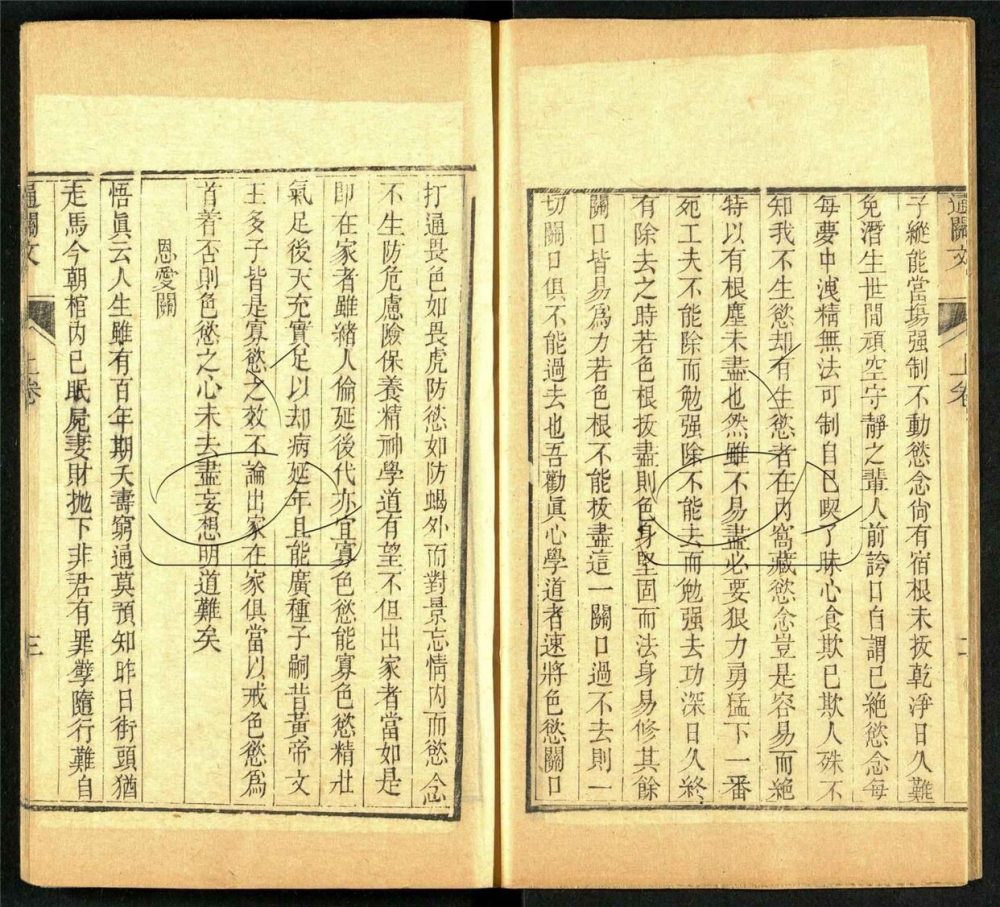 通關文 上卷 二
子縱能當塲强制不動慾念尙有宿根未拔乾淨日久難
免潛生世間頑空守靜之輩人前誇口自謂已絶慾念每
每夢中洩精無法可制自己喫了昧心食欺已欺人殊不
知我不生慾却有生慾者在內窩藏慾念豈是容易而絶
特以有根塵未盡也然雖不易盡必要狠力勇猛下一番
死工夫不能除而勉强除不能去而勉强去功深日久終
有除去之時若色根拔盡則色身堅固而法身易修其餘
關口皆易爲力若色根不能拔盡這一關口過不去則一
切關口俱不能過去也吾勸眞心學道者速將色慾關口
打通畏色如畏虎防慾如防蝎外而對景忘情內而慾念
不生防危慮險保養精神學道有望不但出家者當如是
即在家者雖緒人倫延後代亦宜寡色慾能寡色慾精壯
氣足後天充實足以却病延年且能廣種子嗣昔黃帝文
王多子皆是寡慾之效不論出家在家俱當以戒色慾爲
首着否則色慾之心未去盡妄想明道難矣
恩愛關
悟眞云人生雖有百年期夭壽窮通莫預知昨日街頭猶
走馬今朝棺內已眠屍妻財抛下非君有罪孽隨行難自
通關文 上卷 三